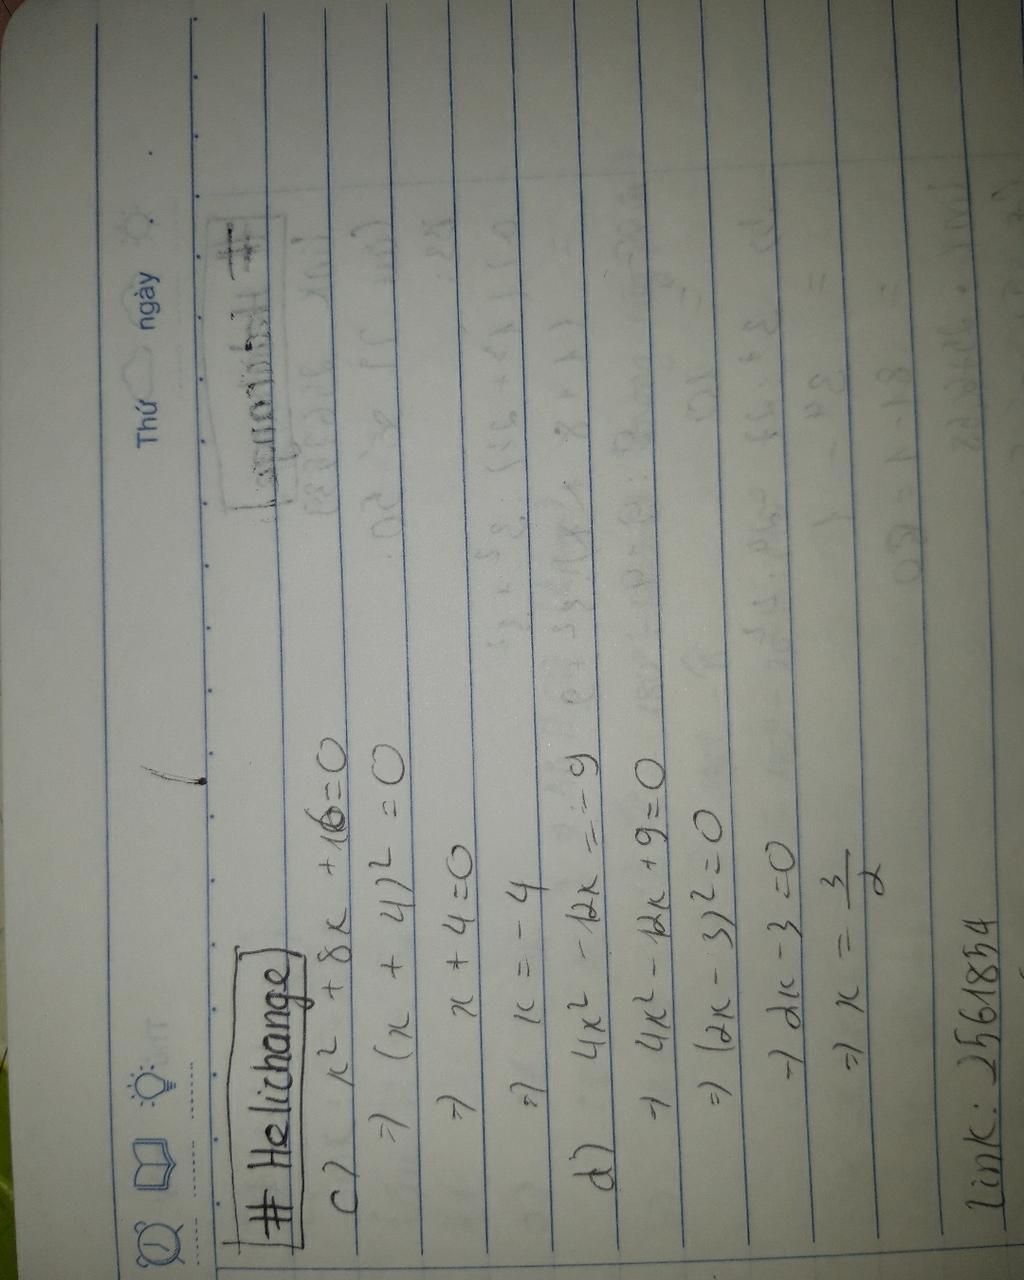 Thứ ngày
# Helichange
c) x² + 8x + 16=0
=) (x + 4)² = 0
=) x + 4 = 0
=) x = - 4
d) 4x² - 12x = - 9
=) 4x² - 12x + 9 = 0
=) (2x - 3)² = 0
=) 2x - 3 = 0
=) x = 3/2
Link: 2561854